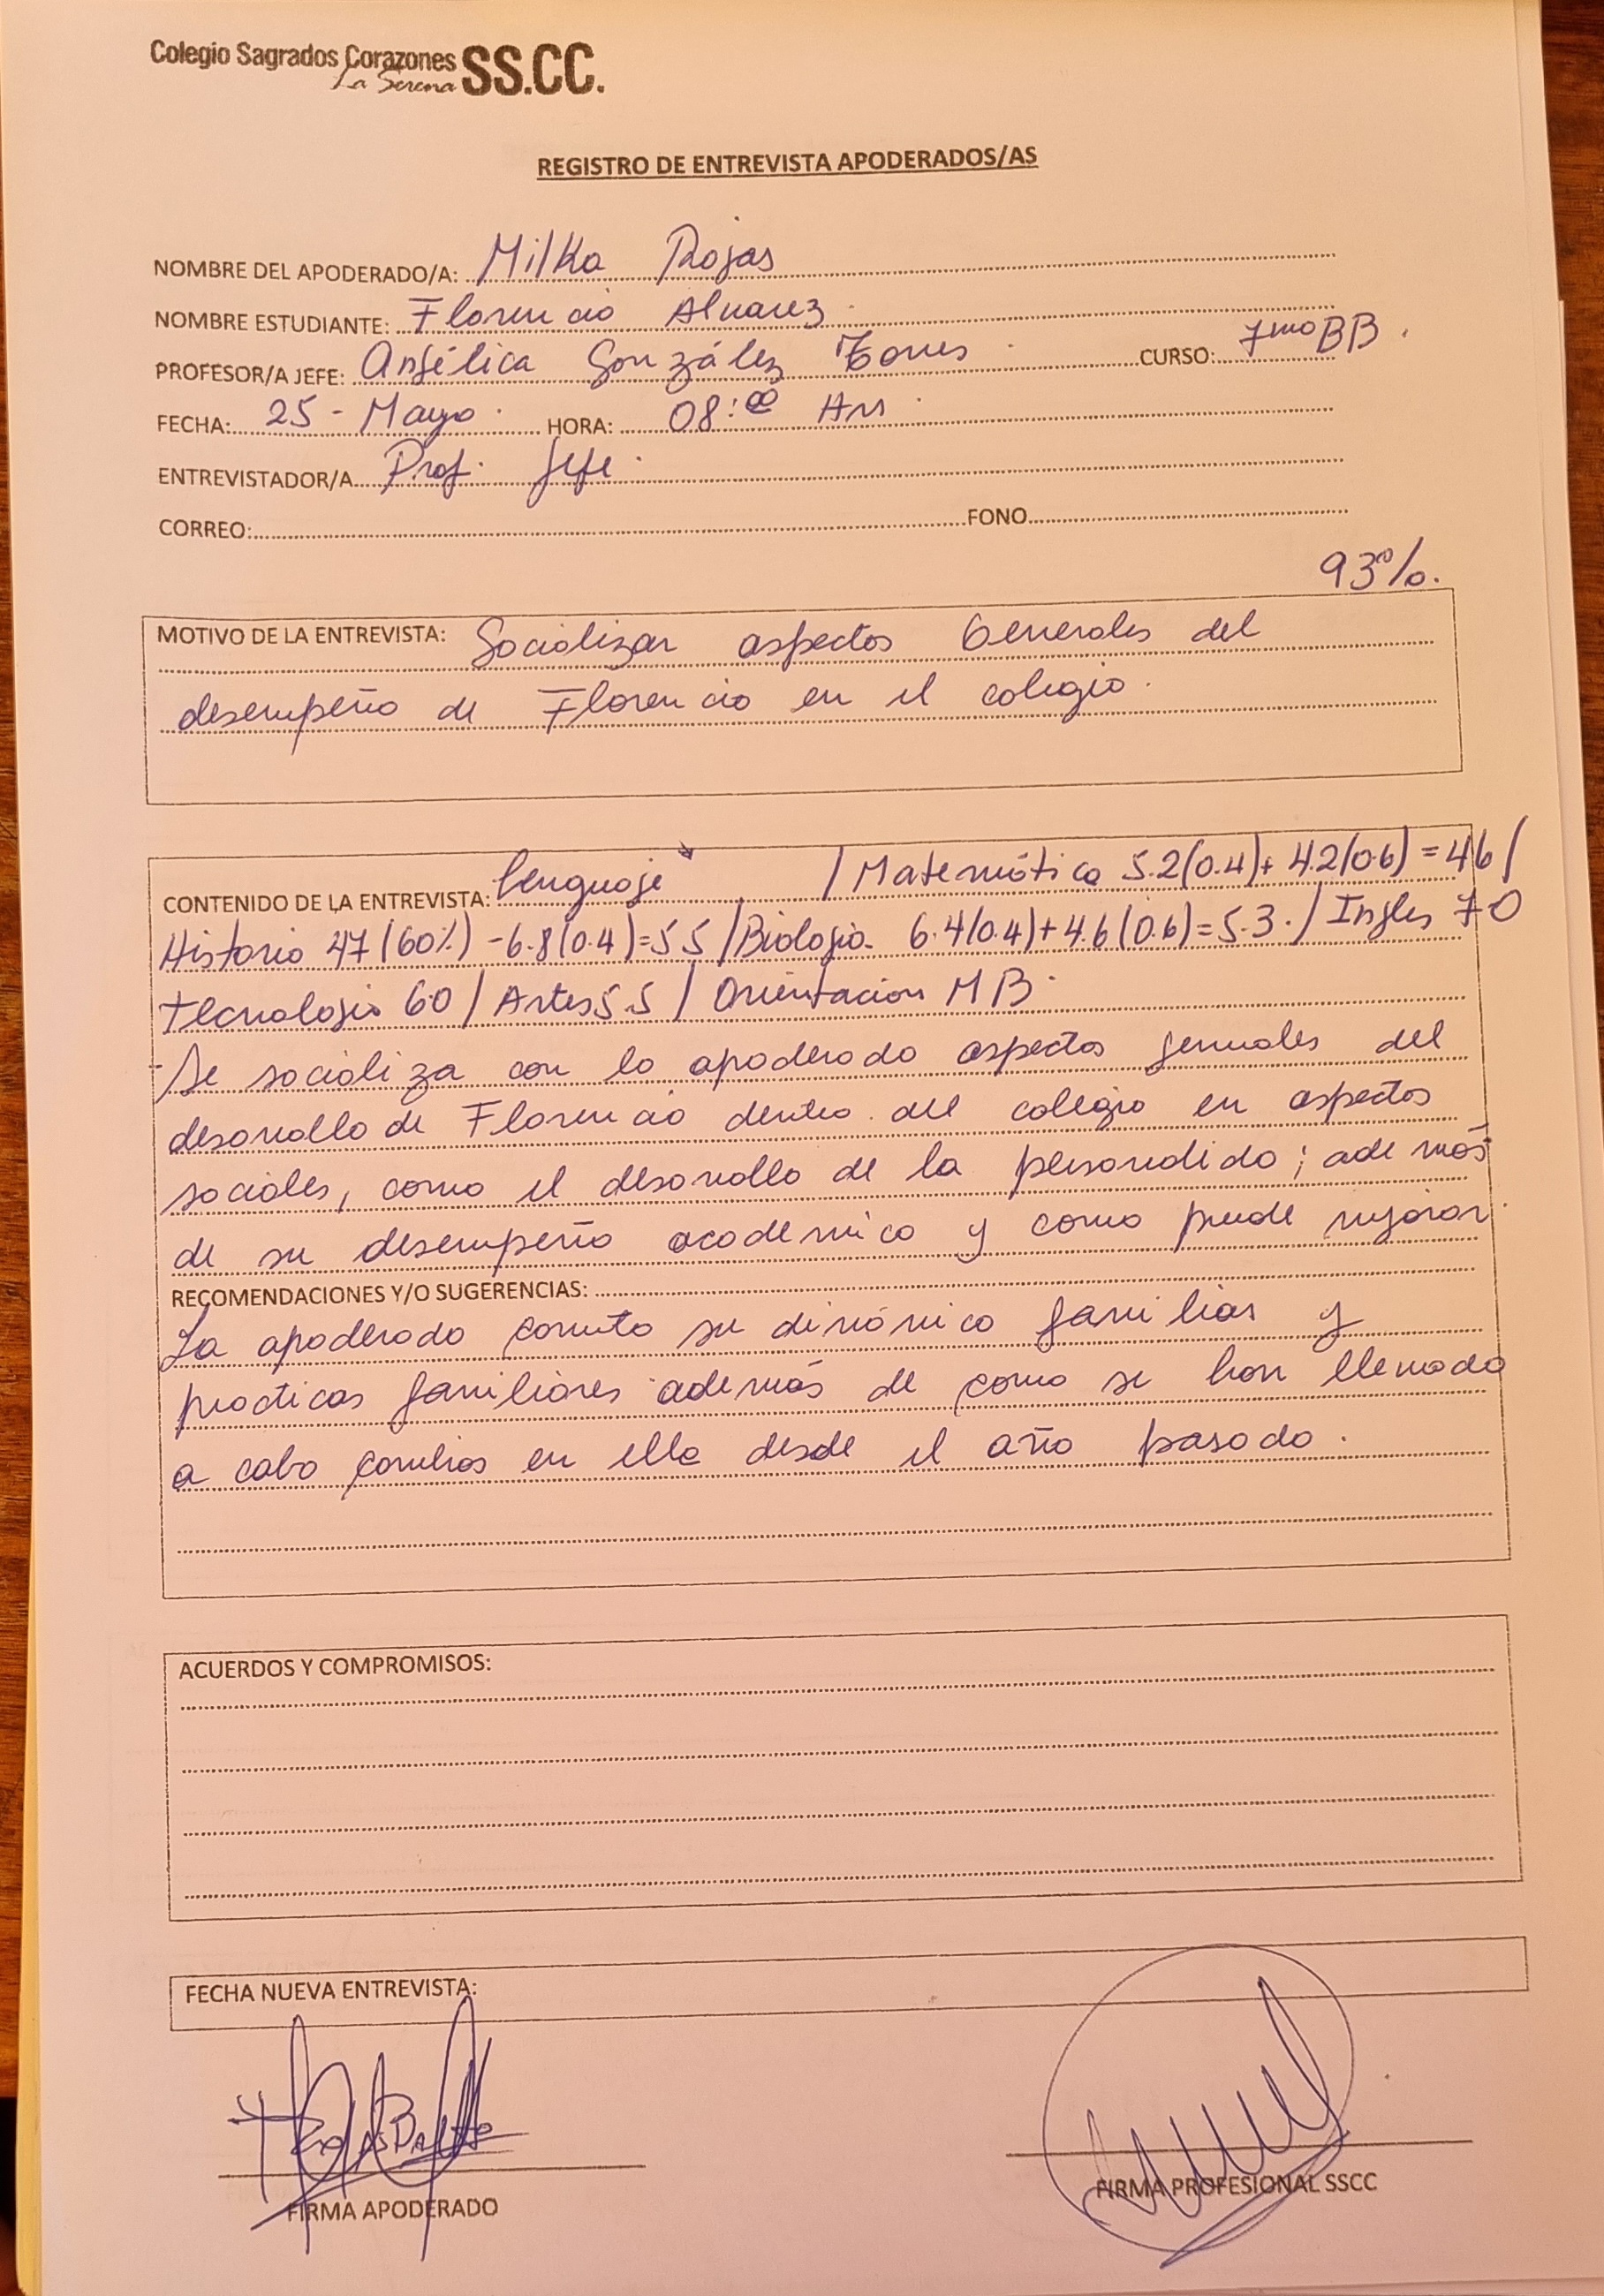 Colegio Sagrados Corazones SS.CC.
La Serena
REGISTRO DE ENTREVISTA APODERADOS/AS
NOMBRE DEL APODERADO/A: Milka Rojas
NOMBRE ESTUDIANTE: Florencia Alvarez
PROFESOR/A JEFE: Angélica González Torres CURSO: 7mo BB.
FECHA: 25 - Mayo HORA: 08:00 AM
ENTREVISTADOR/A Prof. Jefe.
CORREO: FONO
93%.
MOTIVO DE LA ENTREVISTA: Socializar aspectos Generales del
desempeño de Florencia en el colegio.
CONTENIDO DE LA ENTREVISTA: Lenguaje / Matemática 5.2(0.4)+ 4.2(0.6) = 46/
Historia 47 (60%) - 6.8(0.4)=55 / Biologia - 6.4(0.4)+4.6(0.6)=5.3. / Ingles 70
Tecnologia 60 / Artes 5.5 / Orientación MB.
- Se socializa con la apoderada aspectos generales del
desarrollo de Florencia dentro del colegio en aspectos
sociales, como el desarrollo de la ; además
de su desempeño académico y como puede mejorar.
RECOMENDACIONES Y/O SUGERENCIAS:
La apoderada comenta su dinámica familiar y
practicas familiares además de como se han llevado
a cabo cambios en ella desde el año pasado.
ACUERDOS Y COMPROMISOS:
FECHA NUEVA ENTREVISTA:
FIRMA APODERADO FIRMA PROFESIONAL SSCC